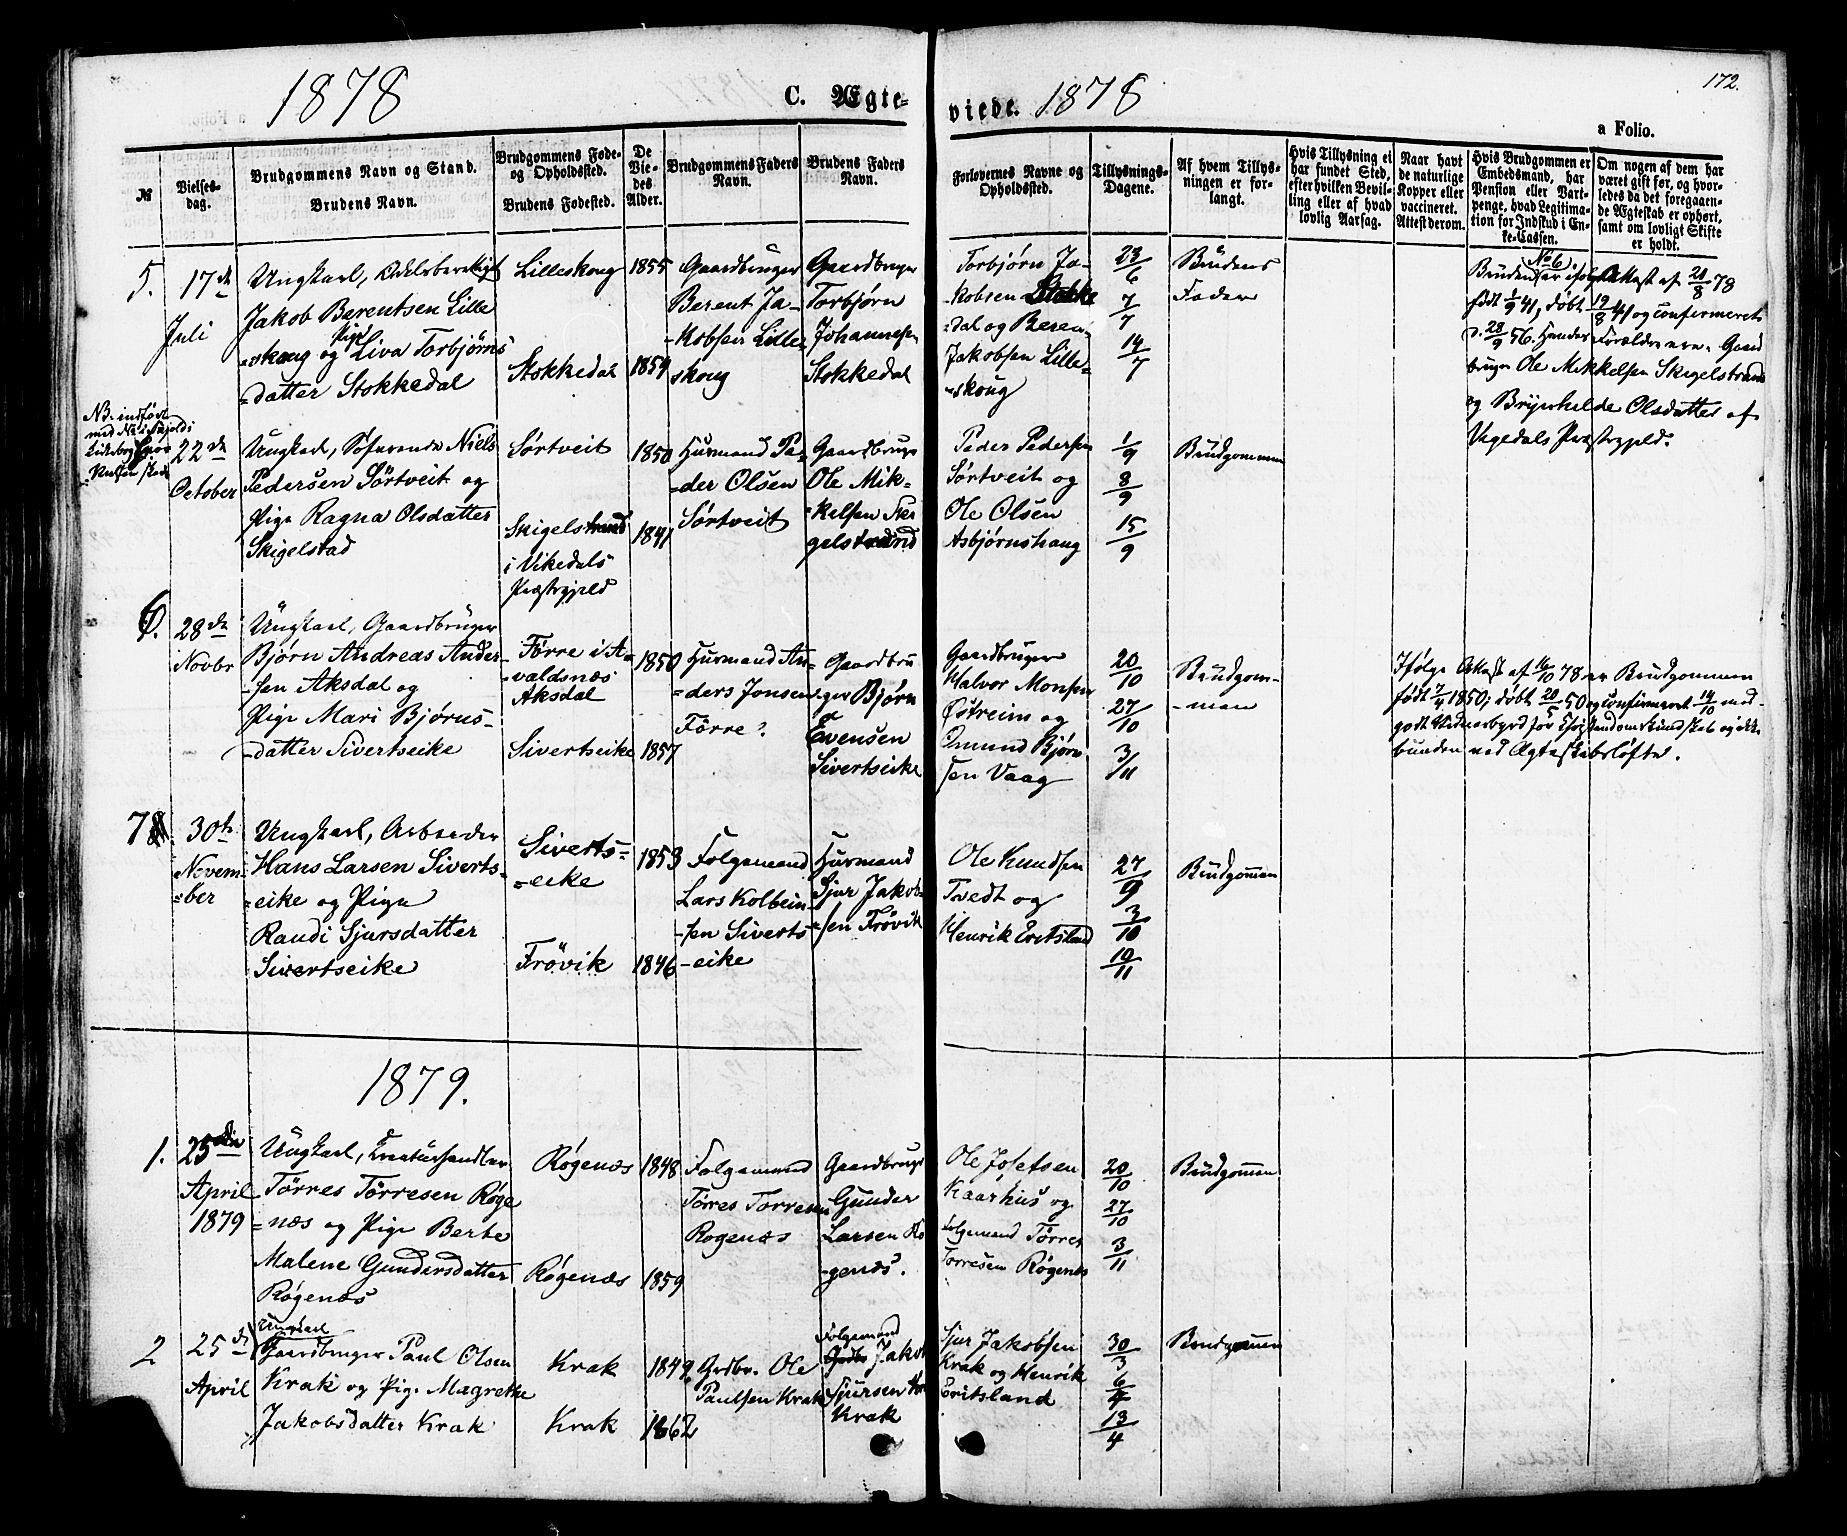 1878
C. Ægte-
viede.
1878
172.
a Folio.
№
Vielses-
dag.
Brudgommens Navn og Stand.
Brudens Navn.
Brudgommens Føde-
og Opholdssted.
Brudens Fødested.
De
Vie-
des
Alder.
Brudgommens Faders
Navn.
Brudens Faders
Navn.
Forlovernes Navne og
Opholdssted.
Tillysnings-
Dagene.
Af hvem Tillys-
ningen er for-
langt.
Hvis Tillysning ei
har fundet Sted,
efter hvilken Bevil-
ling eller af hvad
lovlig Aarsag.
Naar havt
de naturlige
Kopper eller
vaccineret.
Attest derom.
Hvis Brudgommen er
Embedsmand, har
Pension eller Vart-
penge, hvad Legitima-
tion for Indskud i En-
ke-Cassen.
Om nogen af dem har
været gift før, og hvor-
ledes da det foregaaen-
de Ægteskab er ophørt,
samt om lovligt Skifte
er holdt.
5.
17de
Juli
Ungkarl, Odelsberettiget
Jakob Berentsen Lille
-skoug og Pige Liva Torbjørns-
-datter Stokkedal
Lilleskoug
Stokkedal
1855
1859
Gaardbruger
Berent Ja-
-kobsen Lille-
skoug
Gaardbruger
Torbjørn
Johannesen
Stokkedal
Torbjørn Ja-
kobsen Stokke
-dal og Beren
Jakobsen Lille-
-skoug
23/6
7/7
14/7
Brudens
Fader
No 6.
Bruden er ifølge Attest af 20/8 78
født 1/9 41, døbt 19/8 41 og confirmeret
d. 28/9 56. Hendes Forældre ere: Gaard
bruger Ole Mikkelsen Skigelstrand
og Brynhilde Olsdatter af
Vigedals Præstegjeld.
NB. indført
22de
October
Ungkarl, Søfarende Niels
Pedersen Sørtveit og
Pige Ragna Olsdatter
Skigelstad
Sørtveit
Skigelstrand
i Vikedals
Præstegjeld
1850
1841
Husmand Pe-
-der Olsen
Sørtveit
Gaardbruger
Ole Mik-
-kelsen Ski
gelstrand
Peder Pedersen
Sørtveit og
Ole Olsen
Asbjørnshaug
1/9
8/9
15/9
Brudgommen
6.
28de
Novbr
Ungkarl, Gaardbruger
Bjørn Andreas Ander-
-sen Aksdal og
Pige Mari Bjørns-
-datter Sivertseike
Førre i A-
-valdsnæs
Aksdal
Sivertseike
1850
1857
Husmand An-
-ders Jonsen
Førre?
Gaardbru
-ger Bjørn
Evensen
Sivertseike
Gaardbruger
Halvor Monsen
Østreim og
Omund Bjørn
sen Vaag
20/10
27/10
3/11
Brudgom-
-men
Ifølge Attest af 16/10 78 er Brudgommen
født 7/4 1850, døbt 20/5 50 og confirmeret 14/10 med
godt Vidnesbyrd for Christendomskundskab og ikke
bunden ved Ægteskabsløfte.
7
30te
Novem-
-ber
Ungkarl, Arbeider
Hans Larsen Siverts-
-eike og Pige
Randi Sjursdatter
Sivertseike
Siverts-
-eike
Frøvik
1853
1846
Folgemand
Lars Kolbein
-sen Siverts
-eike
Husmand
Sjur Jakob-
-sen Frøvik
Ole Knudsen
Tvedt og
Henrik Eritsland
27/9
3/10
10/11
Brudgommen
1879.
1.
25de
April
1879
Ungkarl, Kreaturhandler
Tørres Tørresen Røge
-næs og Pige Berte
Malene Gundersdatter
Røgenæs
Røgenæs
Røgenæs
1848
1859
Folgemand
Tørres Torresen
Rogenæs
Gaardbruger
Gunder
Larsen Rø
-genæs.
Ole Josefsen
Kaarhus og
Folgemand Tørres
Torresen Røgenæs
20/10
27/10
3/11
Brudgommen
2
25de
April
Ungkarl
Gaardbruger Paul Olsen
Krak og Pige Magrethe
Jakobsdatter Krak
Krak
Krak
1849
1862
Grdbr. Ole
Paulsen Krak
Folgemand
Grdbr Jakob
Sjursen
Krak
Sjur Jakobsen
Krak og Henrik
Eritsland
30/3
6/4
13/4
Brudgommen